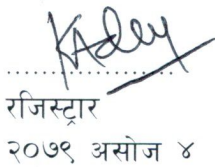 रजिस्ट्रार
२०७९ असोज ४